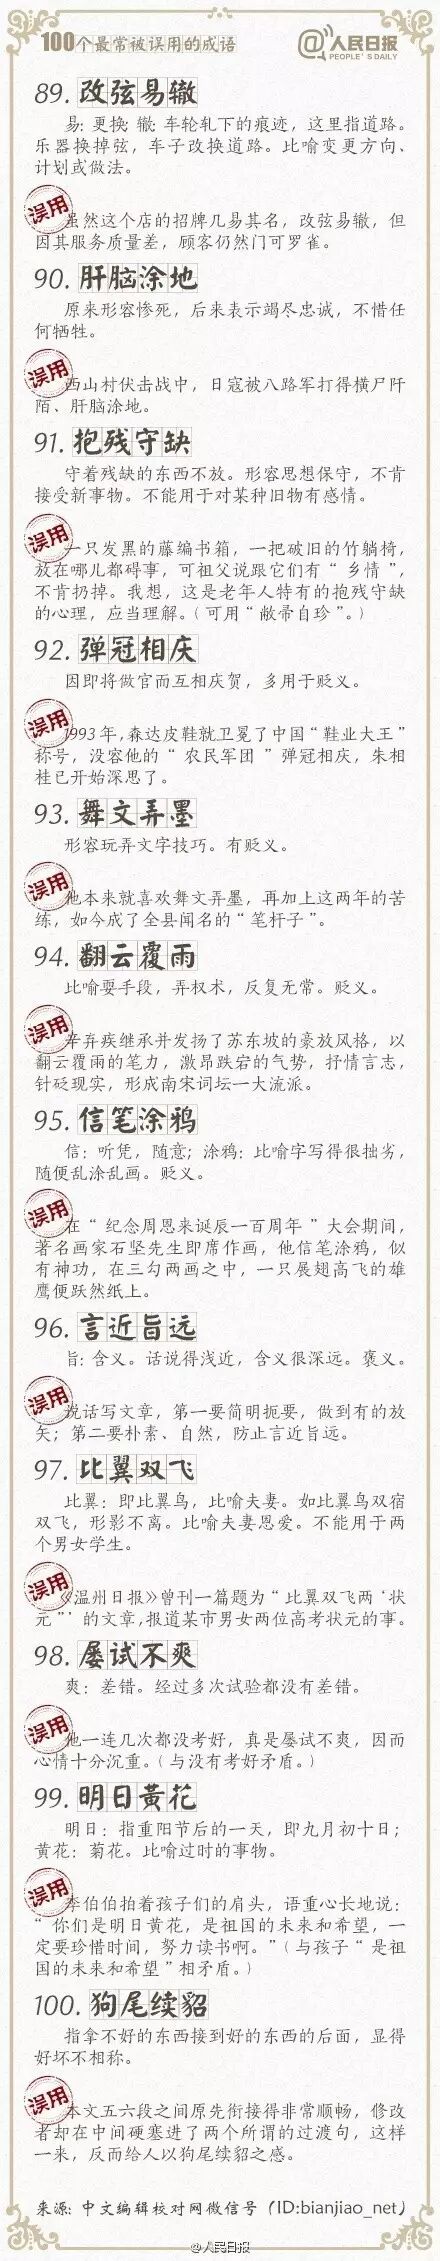 100个最常被误用的成语
@人民日报
PEOPLE'S DAILY
89. 改弦易辙
易: 更换; 辙: 车轮轧下的痕迹, 这里指道路。
乐器换掉弦, 车子改换道路。比喻变更方向、
计划或做法。
误用
虽然这个店的招牌几易其名, 改弦易辙, 但
因其服务质量差, 顾客仍然门可罗雀。
90. 肝脑涂地
原来形容惨死, 后来表示竭尽忠诚, 不惜任
何牺牲。
误用
西山村伏击战中, 日寇被八路军打得横尸阡
陌、肝脑涂地。
91. 抱残守缺
守着残缺的东西不放。形容思想保守, 不肯
接受新事物。不能用于对某种旧物有感情。
误用
一只发黑的藤编书箱, 一把破旧的竹躺椅,
放在哪儿都碍事, 可祖父说跟它们有“乡情”,
不肯扔掉。我想, 这是老年人特有的抱残守缺
的心理, 应当理解。(可用“敝帚自珍”。)
92. 弹冠相庆
因即将做官而互相庆贺, 多用于贬义。
误用
1993年, 森达皮鞋就卫冕了中国“鞋业大王”
称号, 没容他的“农民军团”弹冠相庆, 朱相
桂已开始深思了。
93. 舞文弄墨
形容玩弄文字技巧。有贬义。
误用
他本来就喜欢舞文弄墨, 再加上这两年的苦
练, 如今成了全县闻名的“笔杆子”。
94. 翻云覆雨
比喻耍手段, 弄权术, 反复无常。贬义。
误用
辛弃疾继承并发扬了苏东坡的豪放风格, 以
翻云覆雨的笔力, 激昂跌宕的气势, 抒情言志,
针砭现实, 形成南宋词坛一大流派。
95. 信笔涂鸦
信: 听凭, 随意; 涂鸦: 比喻字写得很拙劣,
随便乱涂乱画。贬义。
误用
在“纪念周恩来诞辰一百周年”大会期间,
著名画家石坚先生即席作画, 他信笔涂鸦, 似
有神功, 在三勾两画之中, 一只展翅高飞的雄
鹰便跃然纸上。
96. 言近旨远
旨: 含义。话说得浅近, 含义很深远。褒义。
误用
说话写文章, 第一要简明扼要, 做到有的放
矢; 第二要朴素、自然, 防止言近旨远。
97. 比翼双飞
比翼: 即比翼鸟, 比喻夫妻。如比翼鸟双宿
双飞, 形影不离。比喻夫妻恩爱。不能用于两
个男女学生。
误用
《温州日报》曾刊一篇题为“比翼双飞两‘状
元’”的文章, 报道某市男女两位高考状元的事。
98. 屡试不爽
爽: 差错。经过多次试验都没有差错。
误用
他一连几次都没考好, 真是屡试不爽, 因而
心情十分沉重。(与没有考好矛盾。)
99. 明日黄花
明日: 指重阳节后的一天, 即九月初十日;
黄花: 菊花。比喻过时的事物。
误用
李伯伯拍着孩子们的肩头, 语重心长地说:
“你们是明日黄花, 是祖国的未来和希望, 一
定要珍惜时间, 努力读书啊。”(与孩子“是祖
国的未来和希望”相矛盾。)
100. 狗尾续貂
指拿不好的东西接到好的东西的后面, 显得
好坏不相称。
误用
本文五六段之间原先衔接得非常顺畅, 修改
者却在中间硬塞进了两个所谓的过渡句, 这样
一来, 反而给人以狗尾续貂之感。
来源: 中文编辑校对网微信号 (ID:bianjiao_net)
@人民日报